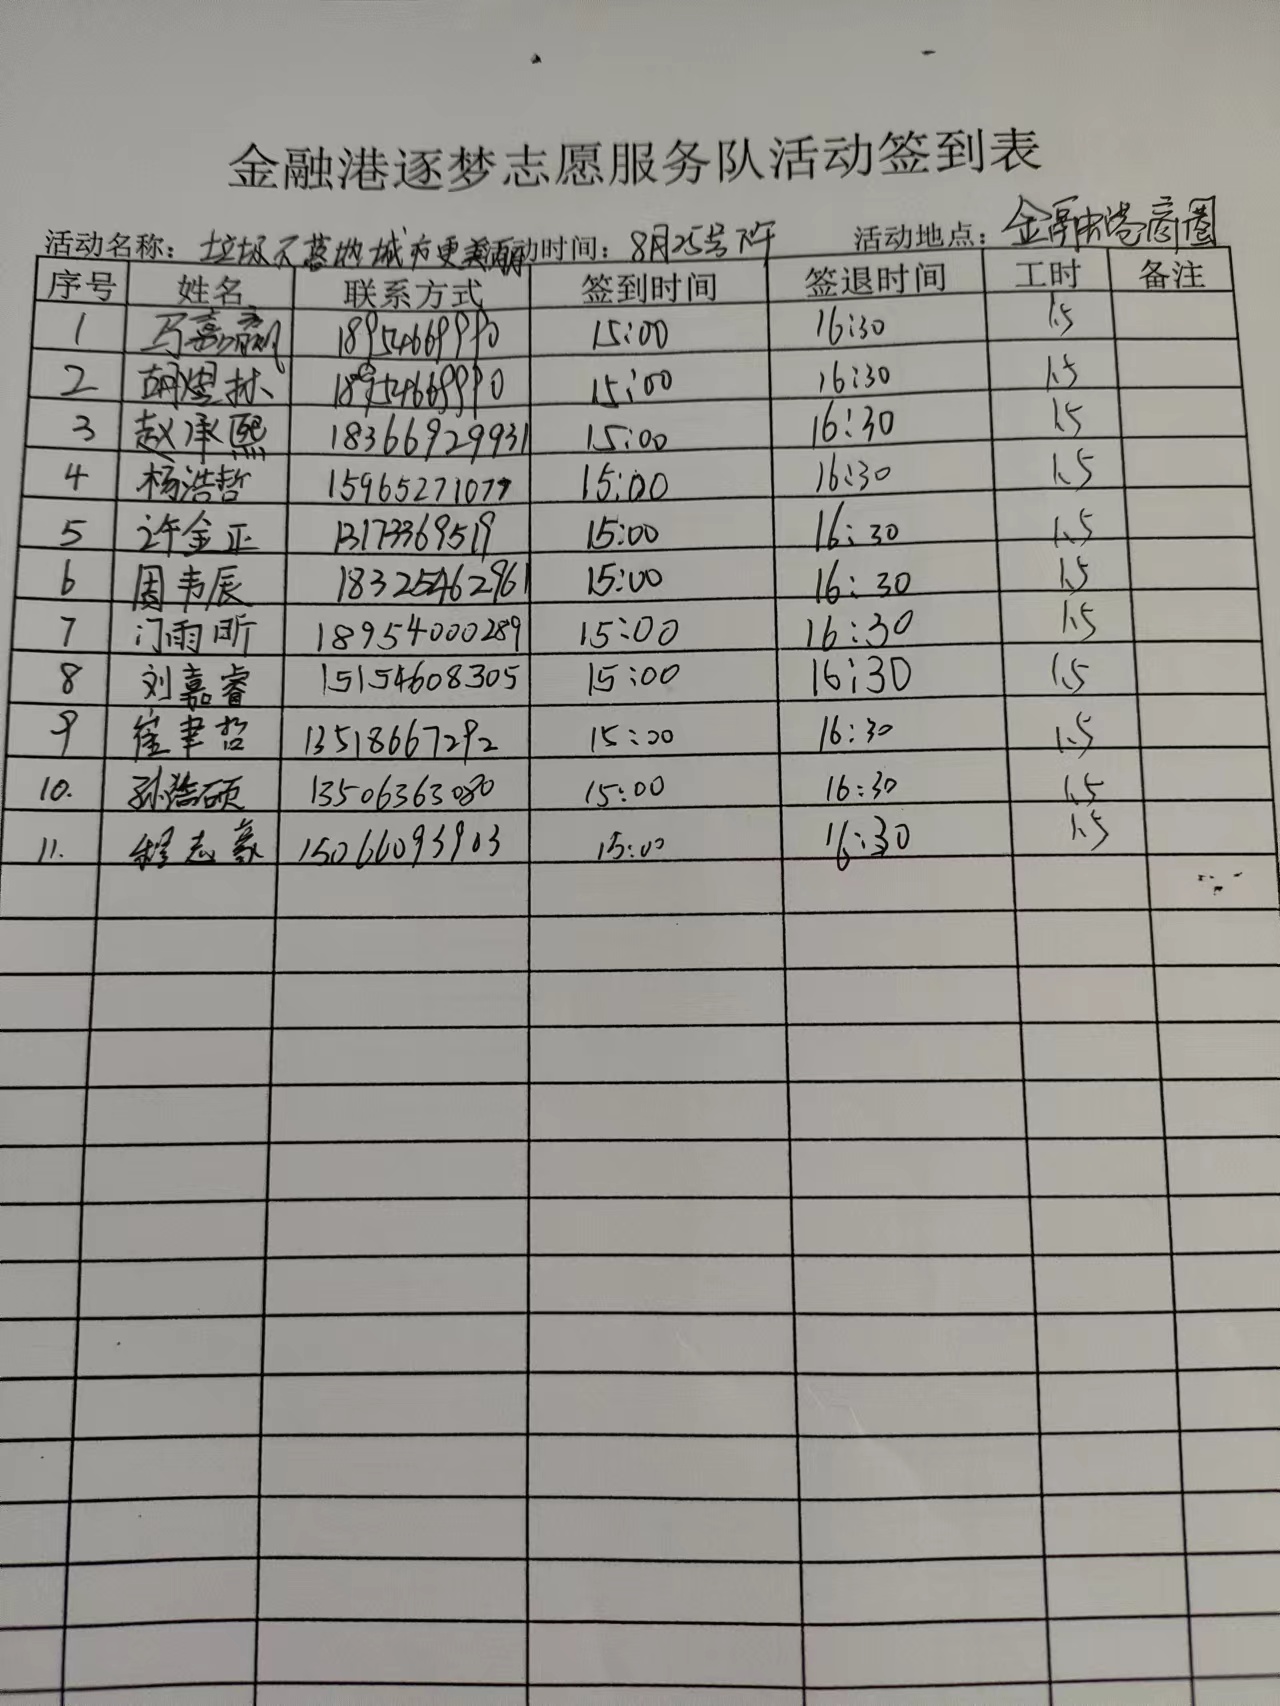 金融港逐梦志愿服务队活动签到表
活动名称：垃圾不落地城市更美丽 活动时间：8月25号下午 活动地点：金融港商圈
序号 姓名 联系方式 签到时间 签退时间 工时 备注
1 马嘉赢 18954669990 15:00 16:30 1.5
2 胡煜林 18954669990 15:00 16:30 1.5
3 赵承熙 18366929931 15:00 16:30 1.5
4 杨浩哲 15965271077 15:00 16:30 1.5
5 许金正 13173369519 15:00 16:30 1.5
6 周韦辰 18325462961 15:00 16:30 1.5
7 门雨昕 18954000289 15:00 16:30 1.5
8 刘嘉睿 15154608305 15:00 16:30 1.5
9 崔聿哲 13518667292 15:00 16:30 1.5
10. 孙浩硕 13506363080 15:00 16:30 1.5
11. 程志豪 15066093903 15:00 16:30 1.5